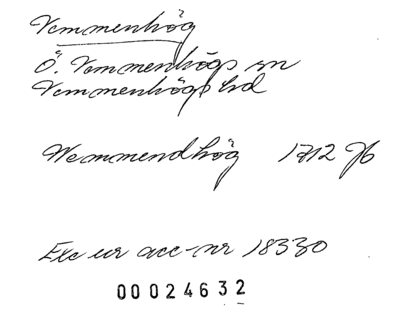 Vemmenhög
Ö. Vemmenhögs sn
Vemmenhögs hd
Wemmendhög 1712 Jb
Exc ur acc-nr 18330
00024632